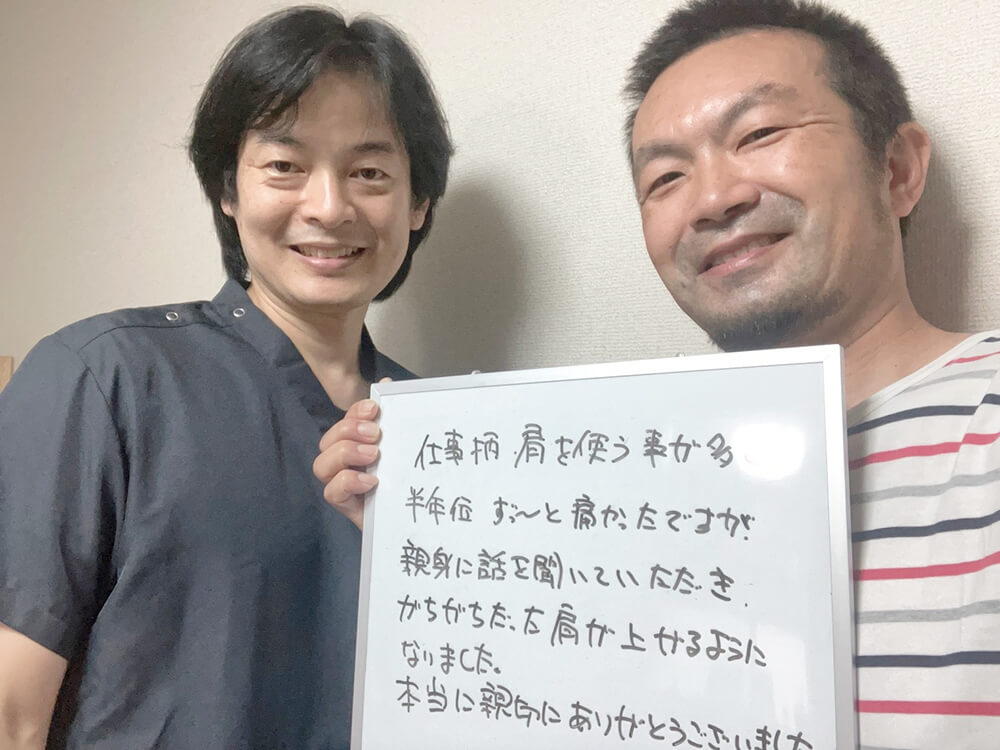 仕事柄、肩を使う事が多
半年位 ずっ〜と痛かったですが、
親身に話を聞いていただき、
がちがちだった肩が上がるように
なりました。
本当に親身にありがとうございました